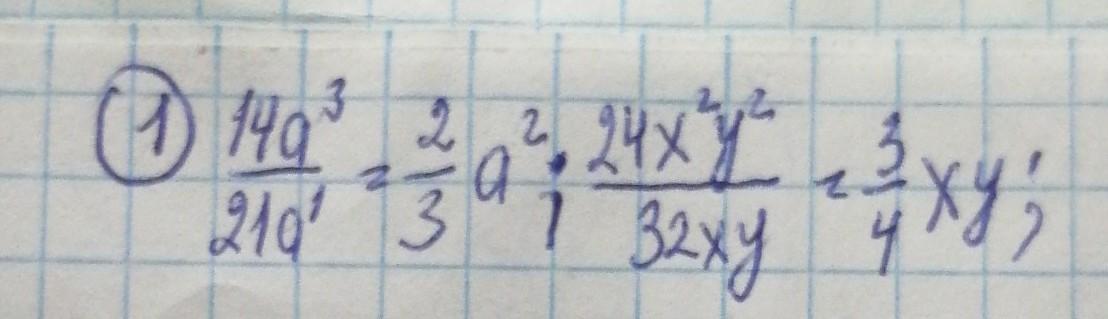 ① 14a³/21a¹ = 2/3 a²; 24x²y²/32xy = 3/4 xy;